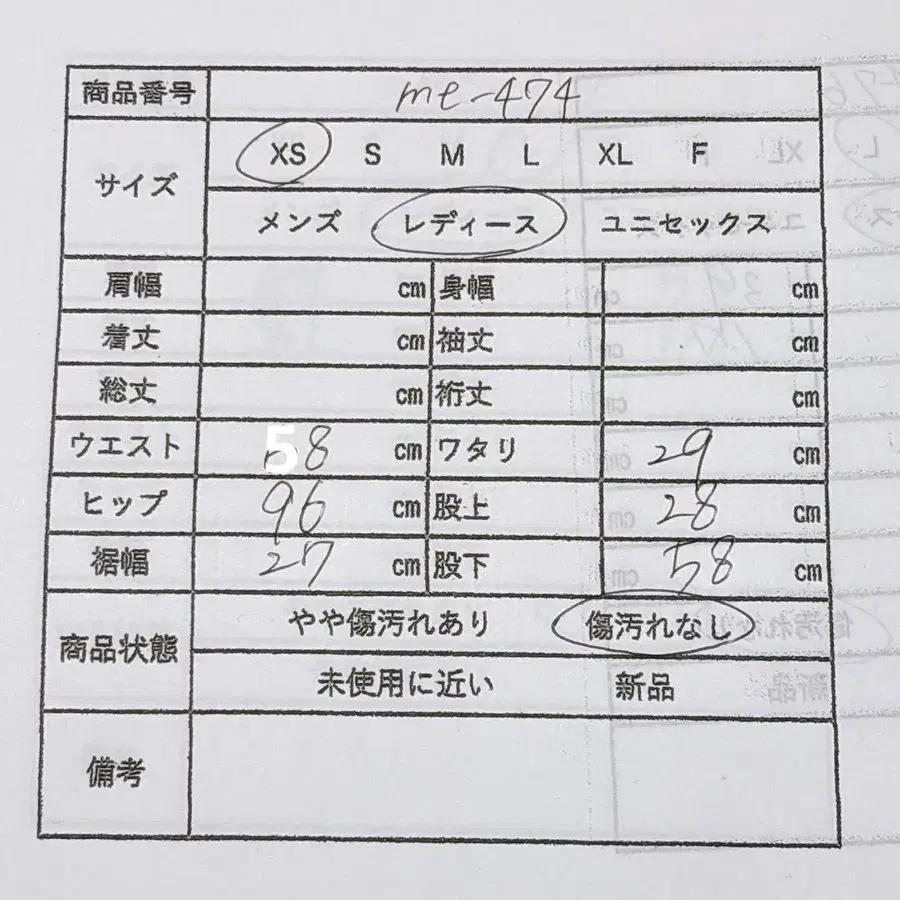 商品番号 me-474
サイズ XS S M L XL F
メンズ レディース ユニセックス
肩幅 cm 身幅 cm
着丈 cm 袖丈 cm
総丈 cm 裄丈 cm
ウエスト 58 cm ワタリ 29 cm
ヒップ 96 cm 股上 28 cm
裾幅 27 cm 股下 58 cm
商品状態 やや傷汚れあり 傷汚れなし
未使用に近い 新品
備考